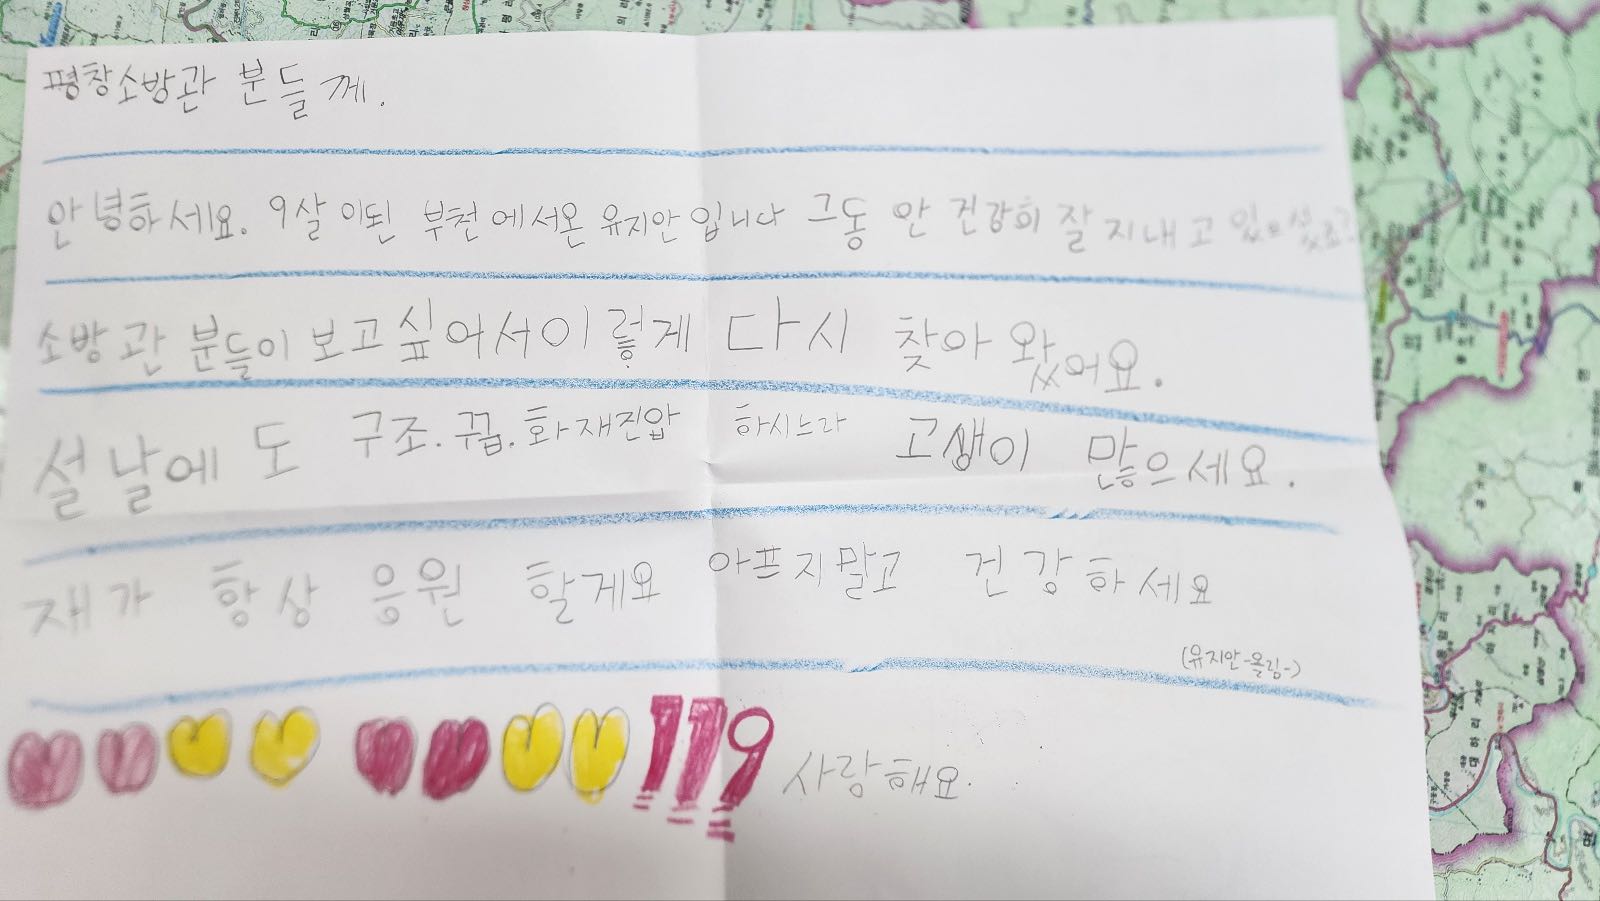 평창소방관 분들께.
안녕하세요. 9살이된 부천에서온 유지안입니다 그동안 건강히 잘지내고 있으셨죠?
소방관 분들이 보고싶어서이렇게 다시 찾아왔어요.
설날에도 구조.꾸급.화재진압 하시느라 고생이 많으세요.
재가 항상 응원 할게요 아프지말고 건강하세요
(유지안-올림-)
119 사랑해요.